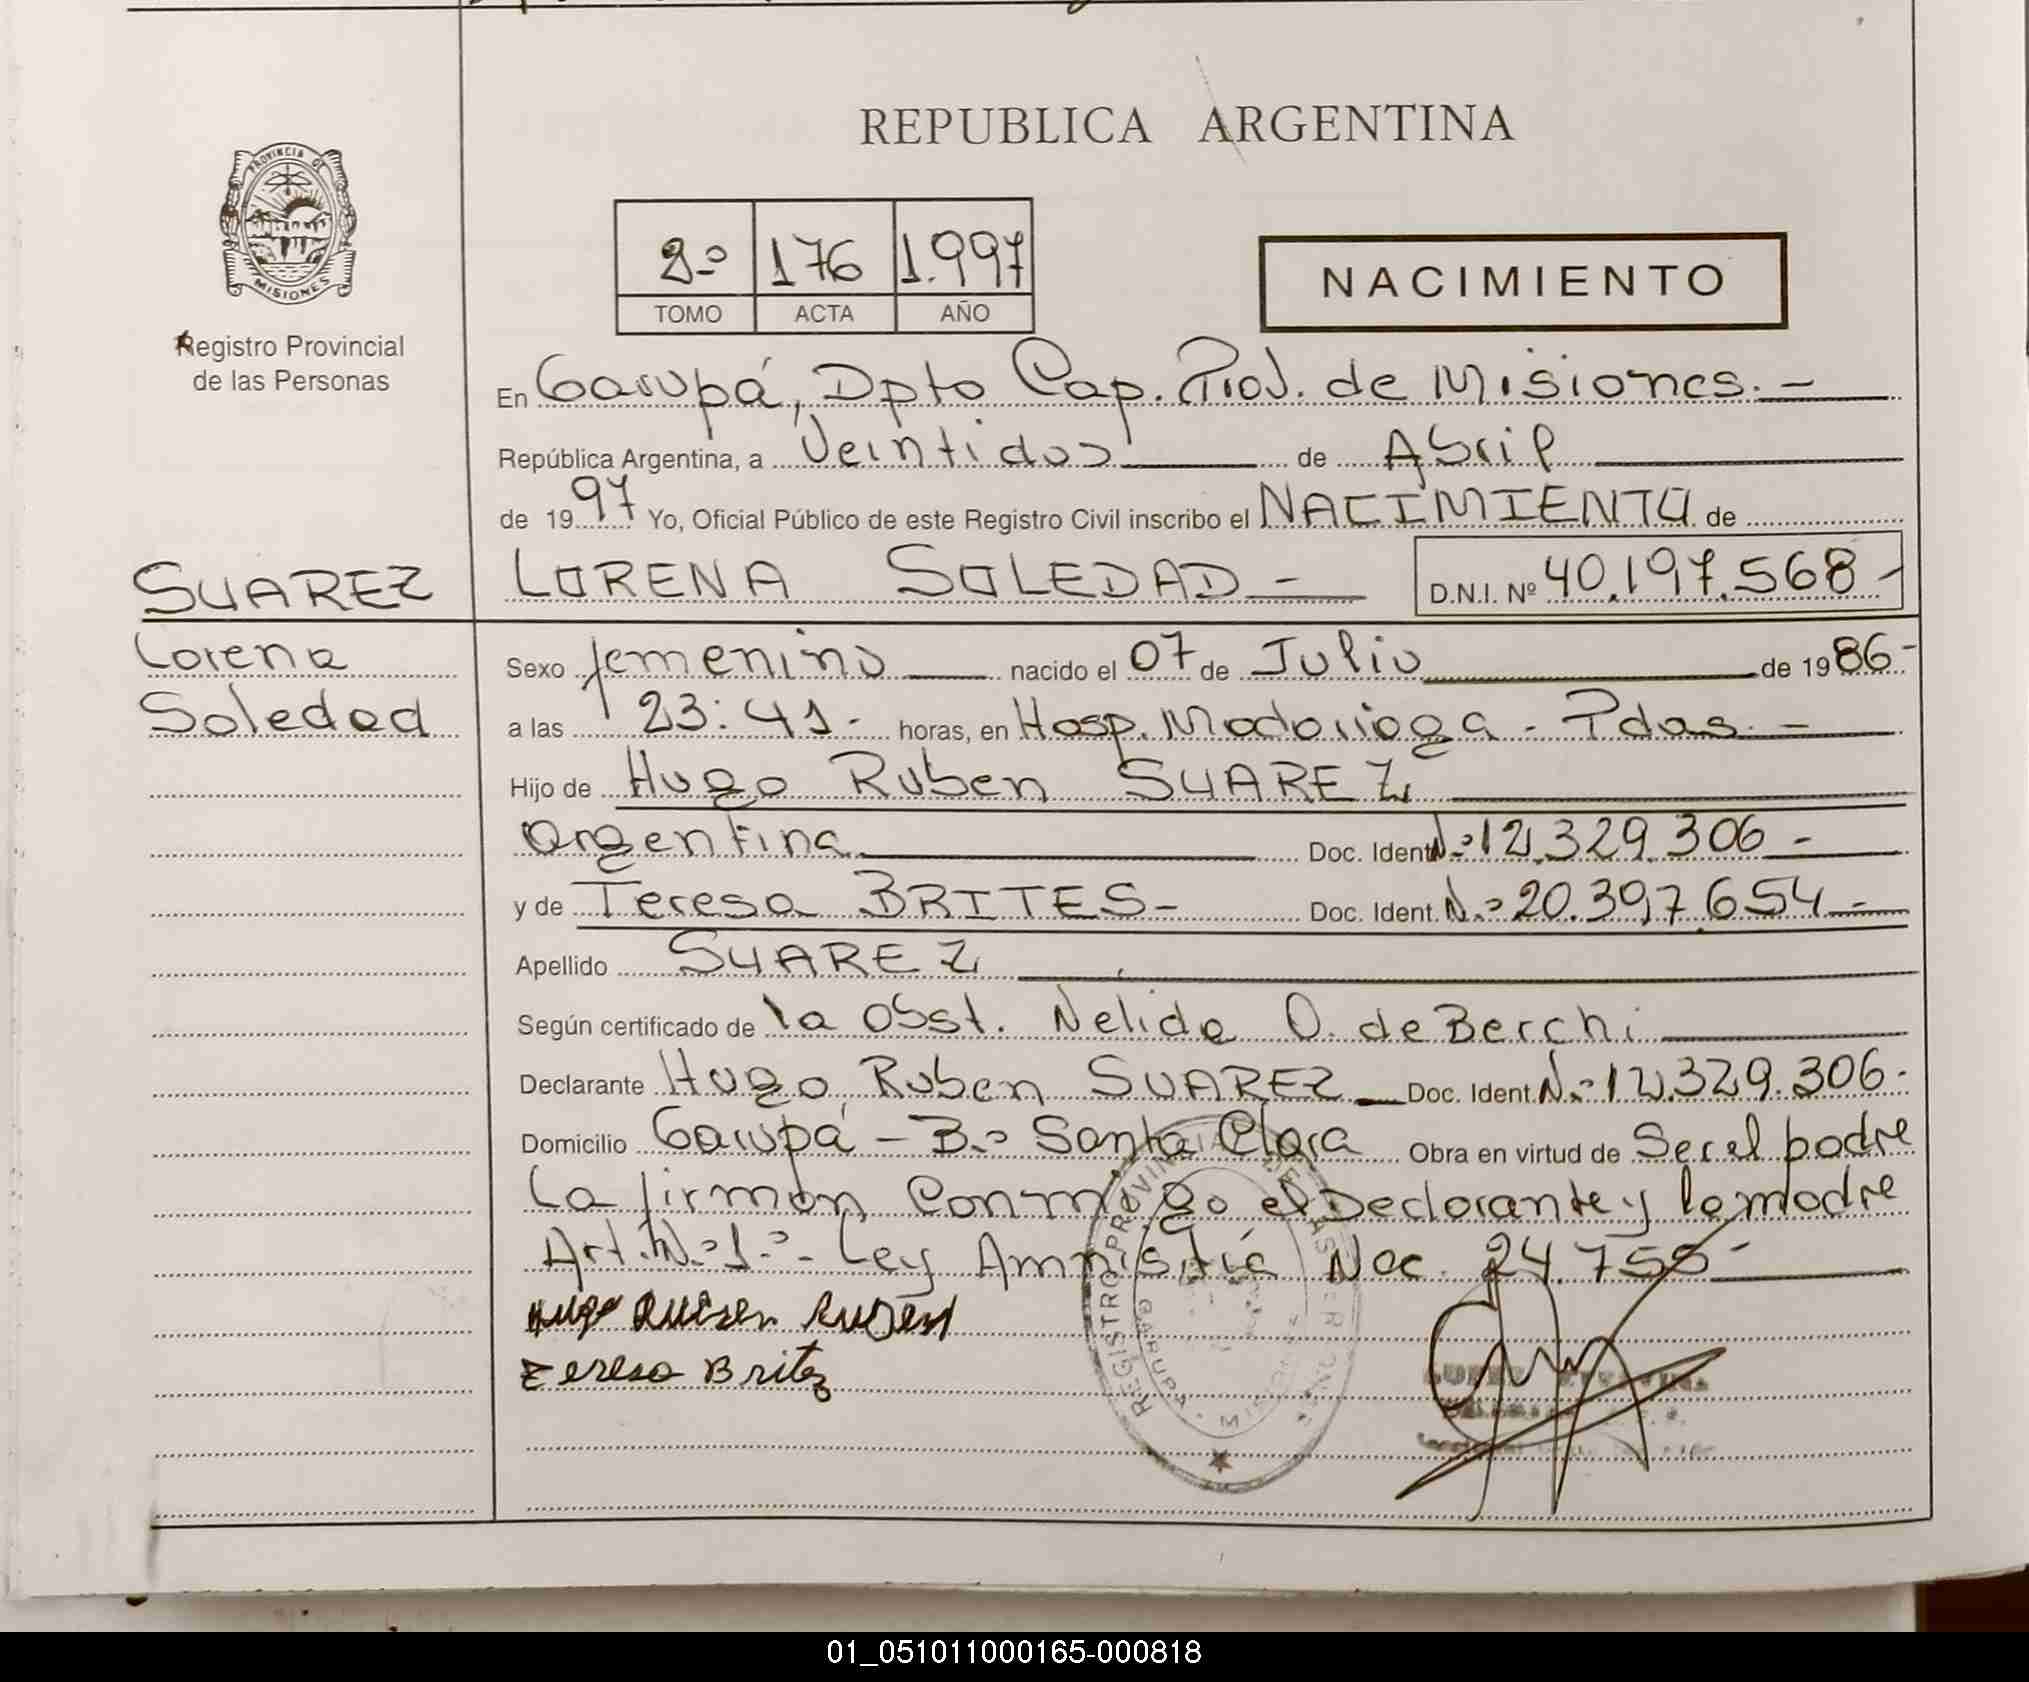 REPUBLICA ARGENTINA
PROVINCIA DE
MISIONES
Registro Provincial
de las Personas
2º 176 1.997
TOMO ACTA AÑO
NACIMIENTO
En Garupá, Dpto Cap. Prov. de Misiones.-
República Argentina, a Veintidos de Abril
de 1997 Yo, Oficial Público de este Registro Civil inscribo el NACIMIENTO de
SUAREZ
Lorena
Soledad
LORENA SOLEDAD - D.N.I. Nº 40.197.568-
Sexo femenino nacido el 07 de Julio de 1986-
a las 23:41- horas, en Hosp. Madariaga - Pdas.-
Hijo de Hugo Ruben SUAREZ
Argentina Doc. Ident. Nº 12.329.306-
y de Teresa BRITES- Doc. Ident. Nº 20.397.654-
Apellido SUAREZ
Según certificado de la Obst. Nelida O. de Berchi
Declarante Hugo Ruben SUAREZ Doc. Ident. Nº 12.329.306-
Domicilio Garupá - Bº Santa Clara Obra en virtud de Ser el padre
La firman conmigo el Declarante y la madre
Art. Nº 1º- Ley Amnistía Nac. 24.755-
Teresa Britez
REGISTRO PROVINCIAL DE LAS PERSONAS
GARUPA - MISIONES
01_051011000165-000818